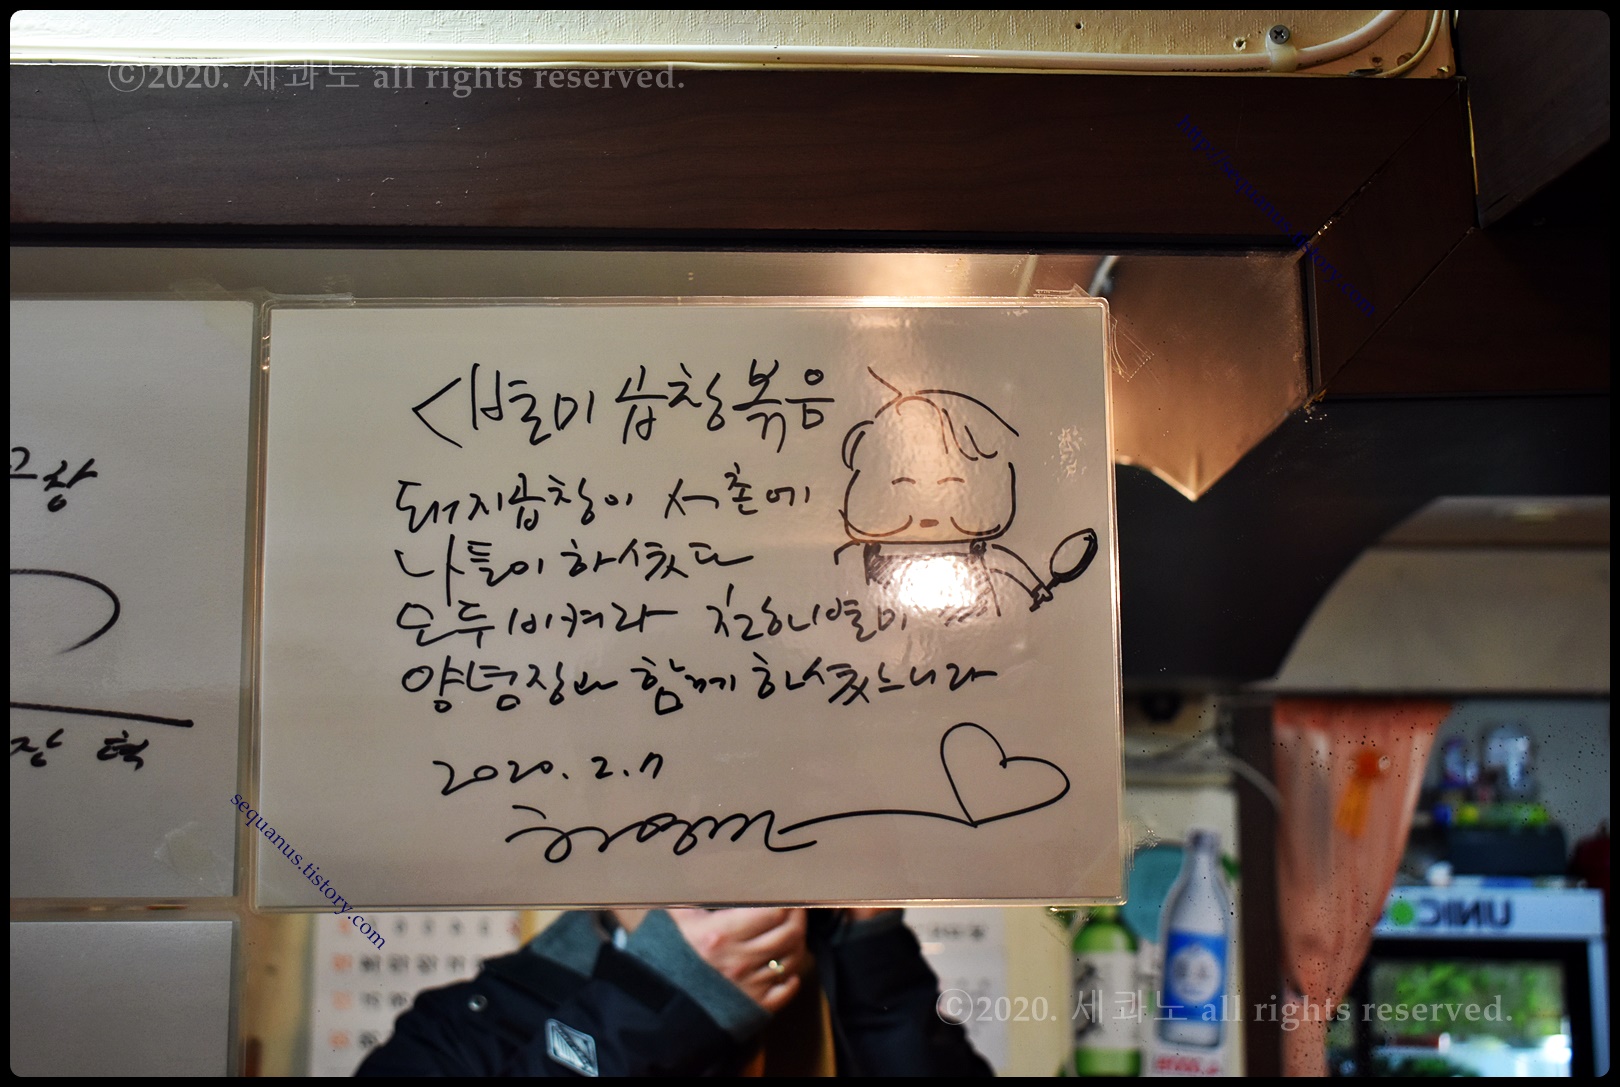 ⓒ2020. 세콰노 all rights reserved.
http://sequanus.tistory.com
<별미 곱창볶음
돼지곱창이 서촌에
나들이 하셨다
모두 비켜라 친히 별미
양념장과 함께 하셨느니라
2020. 2. 7
창
장 혁
sequanus.tistory.com
UNIC
ⓒ2020. 세콰노 all rights reserved.